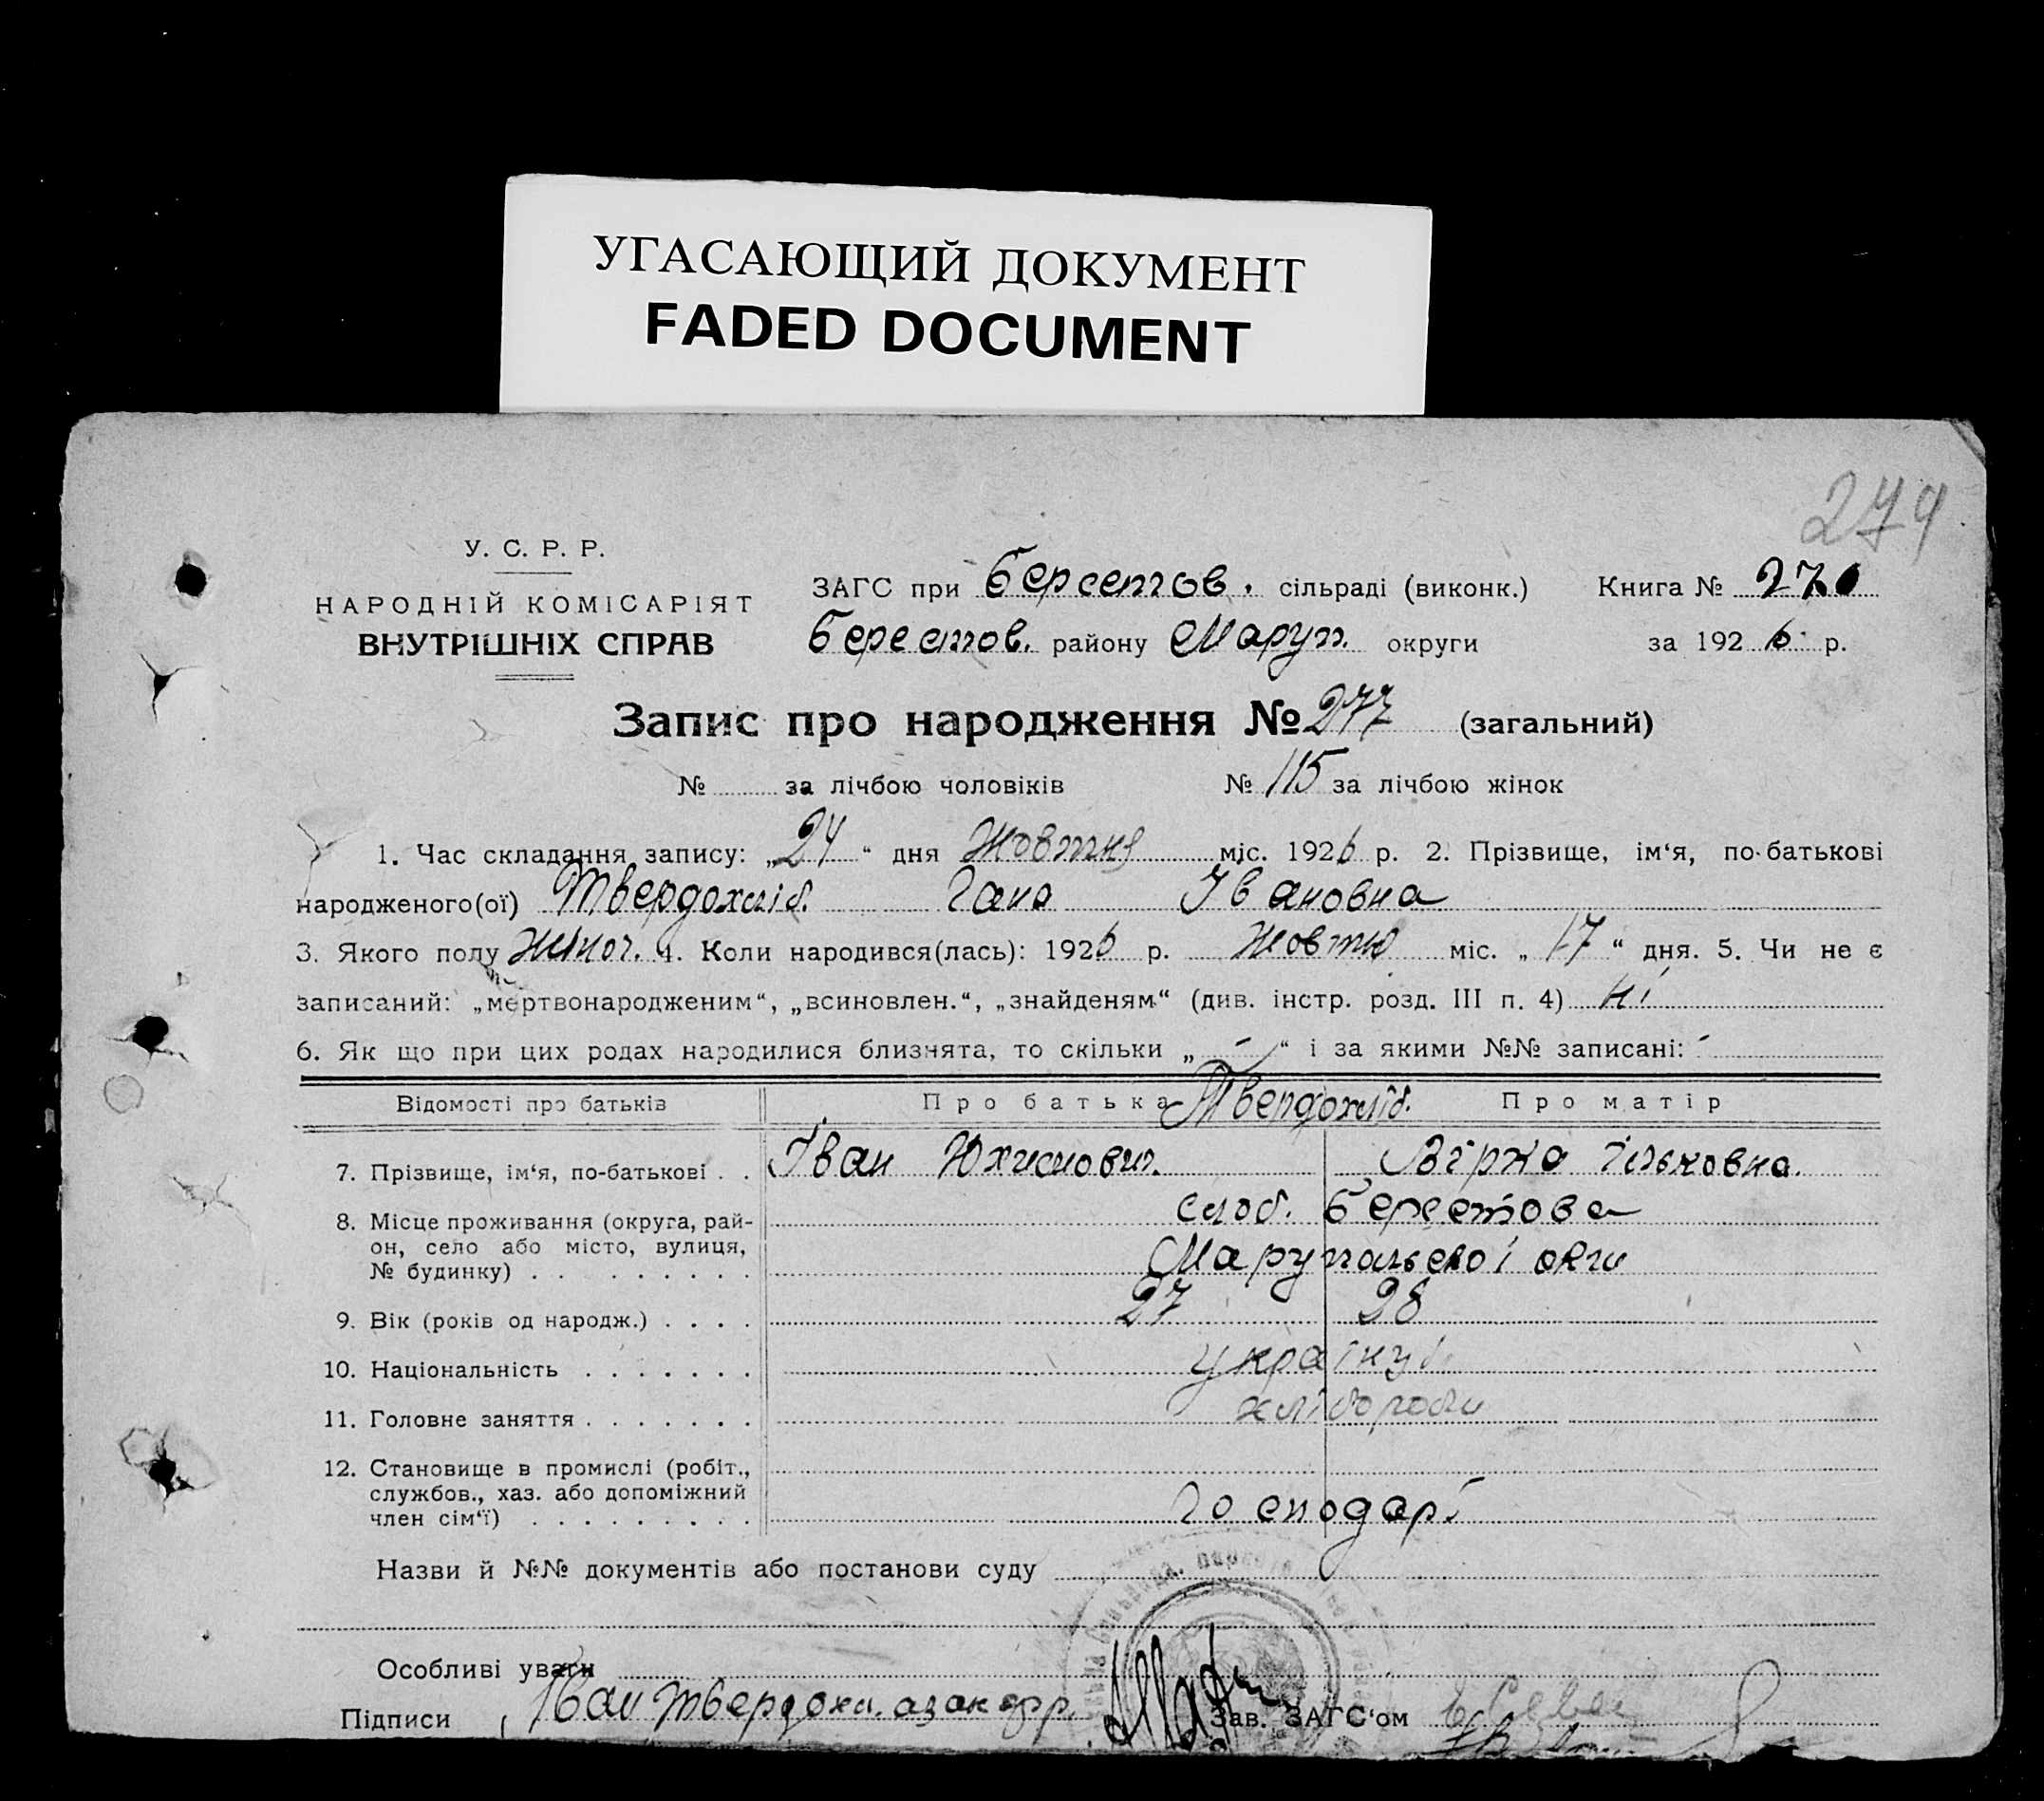 УГАСАЮЩИЙ ДОКУМЕНТ
FADED DOCUMENT
279
У. С. Р. Р.
НАРОДНІЙ КОМІСАРІЯТ
ВНУТРІШНІХ СПРАВ
ЗАГС при Берестов. сільраді (виконк.) Книга № 270
Берестов. району Маруп. округи за 1926 р.
Запис про народження № 277 (загальний)
№ за лічбою чоловіків № 115 за лічбою жінок
1. Час складання запису: „24“ дня Жовтня міс. 1926 р. 2. Прізвище, ім‘я, по-батькові
народженого(ої) Твердохліб. Гана Івановна
3. Якого полу жіноч. 4. Коли народився(лась): 1926 р. Жовтю міс. „17“ дня. 5. Чи не є
записаний: „мертвонародженим“, „всиновлен.“, „знайденям“ (див. інстр. розд. III п. 4) ні
6. Як що при цих родах народилися близнята, то скільки „ - “ і за якими №№ записані: -
Відомості про батьків Про батька Твердохліб. Про матір
7. Прізвище, ім‘я, по-батькові . . Іван Юхимович. Вірка Ільковна.
8. Місце проживання (округа, рай-
он, село або місто, вулиця,
№ будинку) . . . . . . . . .
слоб. Берестова
Марупольської окги
9. Вік (років од народж.) . . . . 27 28
10. Національність . . . . . . . україну
11. Головне заняття . . . . . . . хлібороби
12. Становище в промислі (робіт.,
службов., хаз. або допоміжний
член сім‘ї) . . . . . . . . .
господарі
Назви й №№ документів або постанови суду
Особливі уваги
Підписи Іван Твердохл. Зав. ЗАГС‘ом